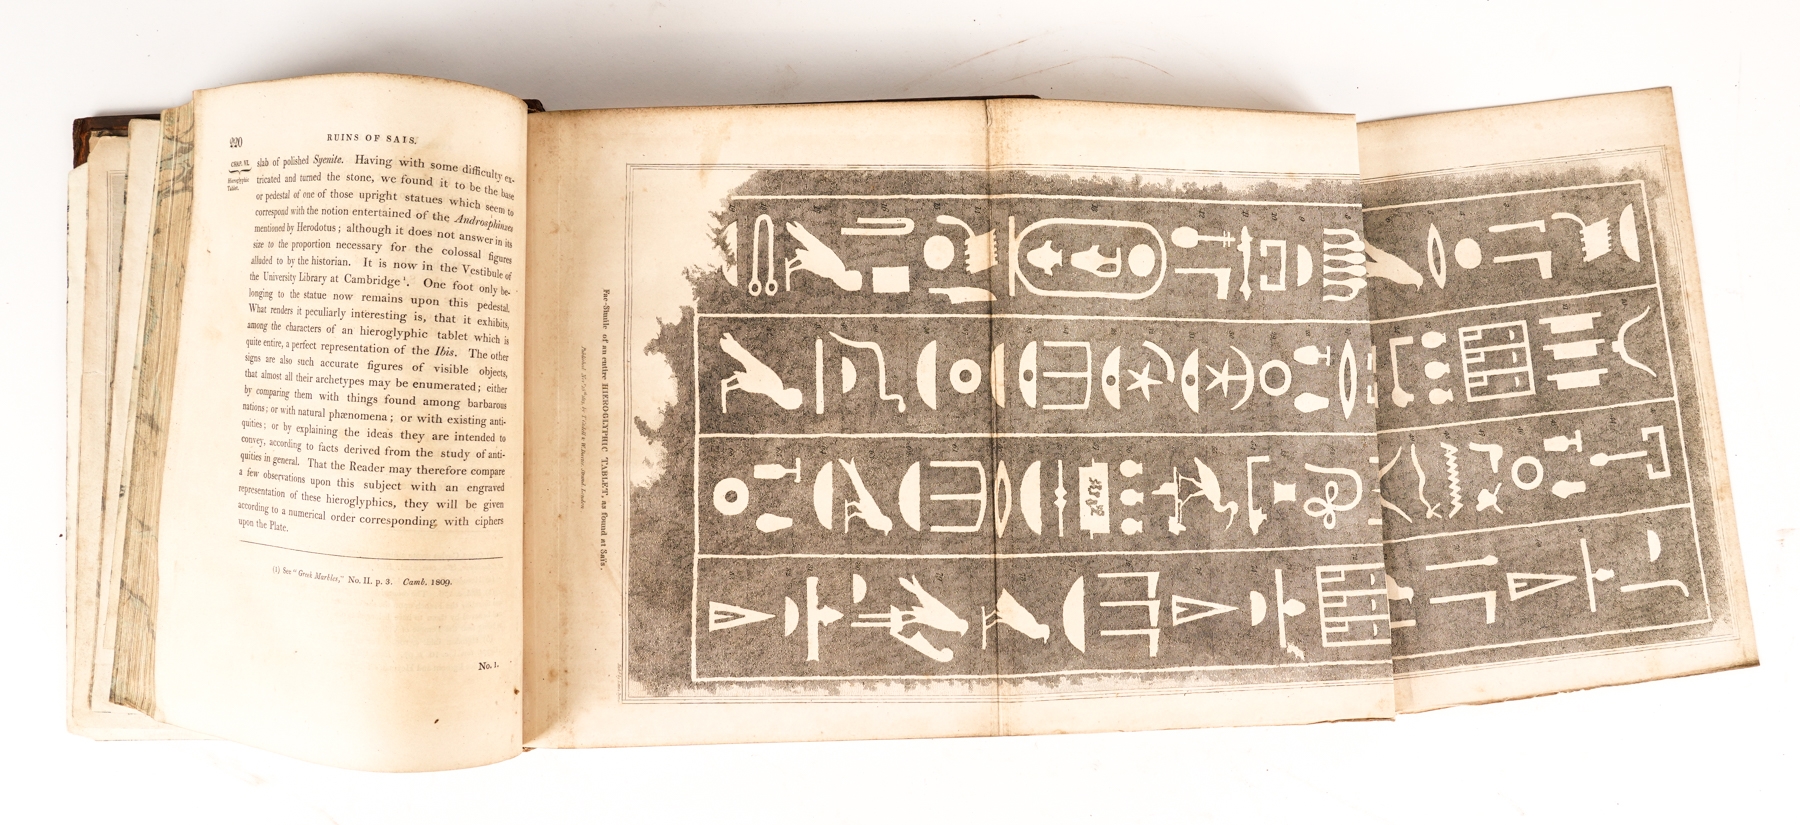 220
RUINS OF SAIS.
CHAP. VI.
Hieroglyphic
Tablet.
slab of polished Syenite. Having with some difficulty ex-
tricated and turned the stone, we found it to be the base
or pedestal of one of those upright statues which seem to
correspond with the notion entertained of the Androsphinxes
mentioned by Herodotus; although it does not answer in its
size to the proportion necessary for the colossal figures
alluded to by the historian. It is now in the Vestibule of
the University Library at Cambridge¹. One foot only be-
longing to the statue now remains upon this pedestal.
What renders it peculiarly interesting is, that it exhibits,
among the characters of an hieroglyphic tablet which is
quite entire, a perfect representation of the Ibis. The other
signs are also such accurate figures of visible objects,
that almost all their archetypes may be enumerated; either
by comparing them with things found among barbarous
nations; or with natural phænomena; or with existing anti-
quities; or by explaining the ideas they are intended to
convey, according to facts derived from the study of anti-
quities in general. That the Reader may therefore compare
a few observations upon this subject with an engraved
representation of these hieroglyphics, they will be given
according to a numerical order corresponding with ciphers
upon the Plate.
(1) See "Greek Marbles," No. II. p. 3. Camb. 1809.
No. 1.
Fac-Simile of an entire HIEROGLYPHIC TABLET, as found at Saïs.